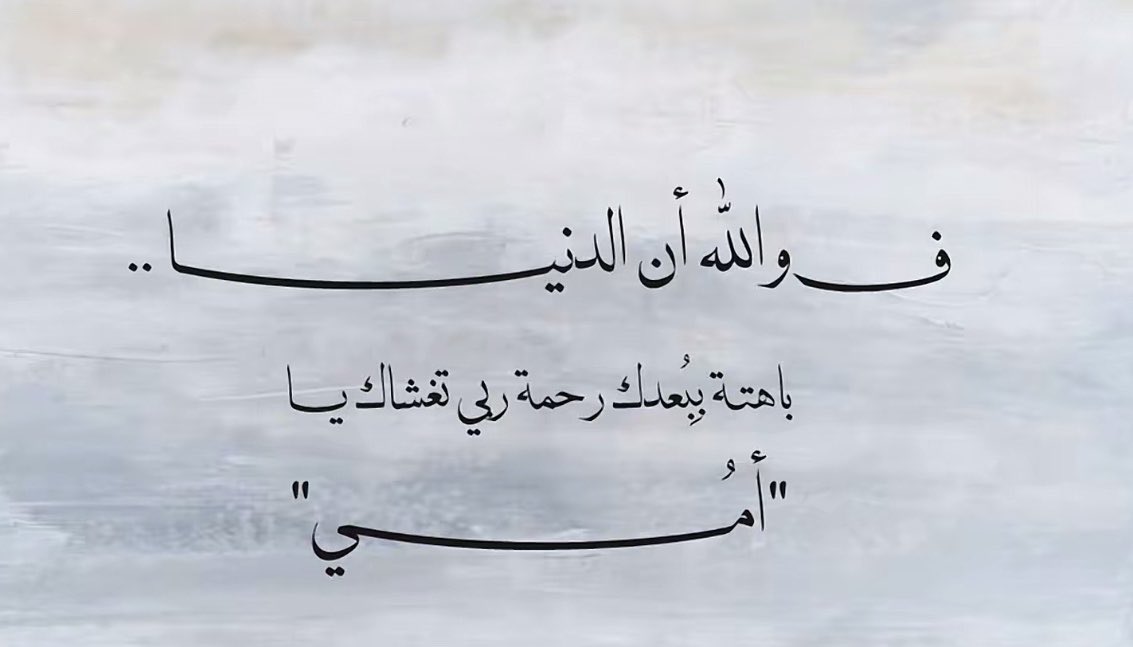 فـــووالله أن الدنيـــــــا ..
باهتـة بِبُعدك رحمة ربي تغشاك يــا
"أمُـــــــي"